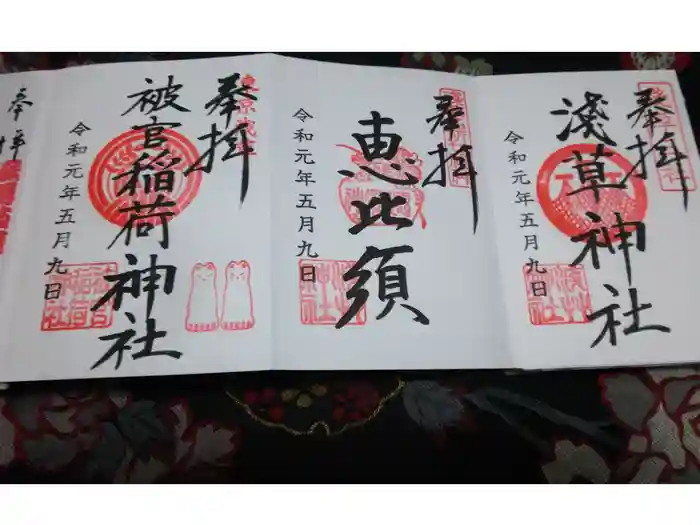 奉拝
淺草神社
令和元年五月九日
奉拝
恵比須
令和元年五月九日
奉拝
被官稲荷神社
令和元年五月九日
奉拝